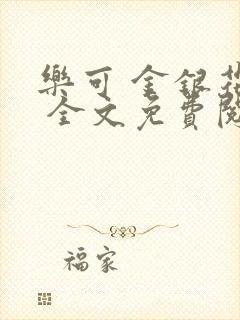 樂可 金銀花
全文免費閱
福家